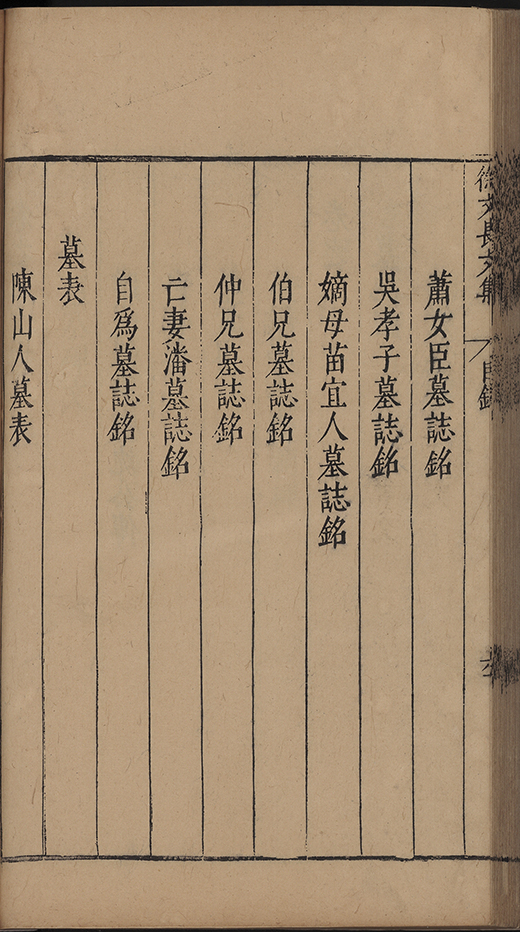 徐文長文集
目錄
蕭女臣墓誌銘
吳孝子墓誌銘
嫡母苗宜人墓誌銘
伯兄墓誌銘
仲兄墓誌銘
亡妻潘墓誌銘
自爲墓誌銘
墓表
陳山人墓表